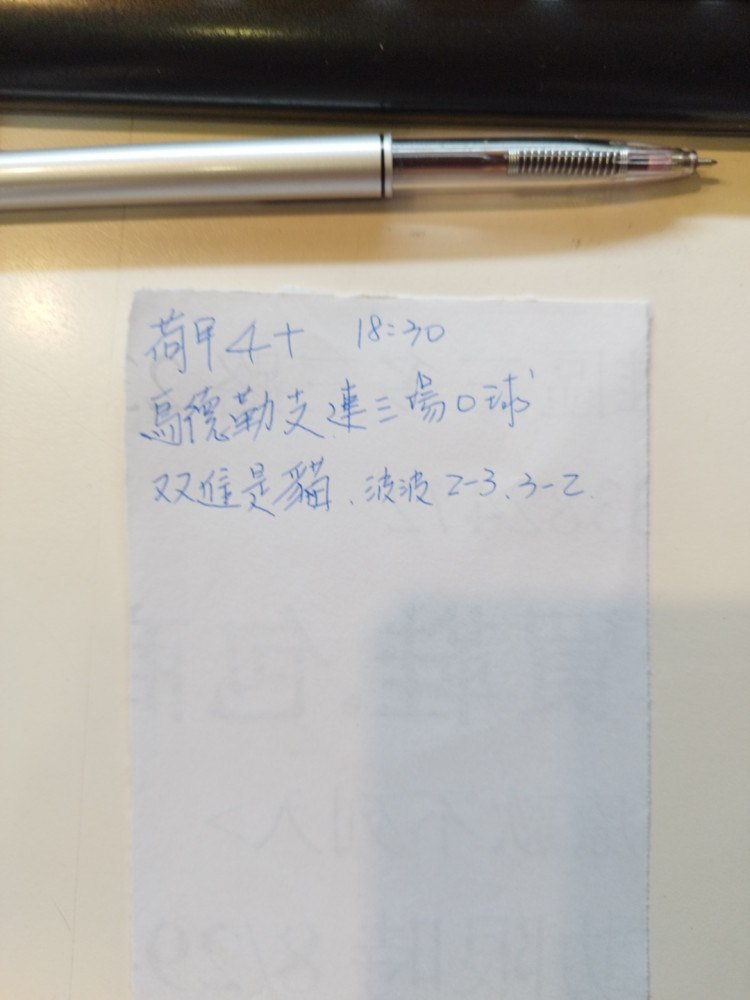 荷甲4+ 18:30
烏德勒支連三場0球
双進是貓、波波2-3、3-2